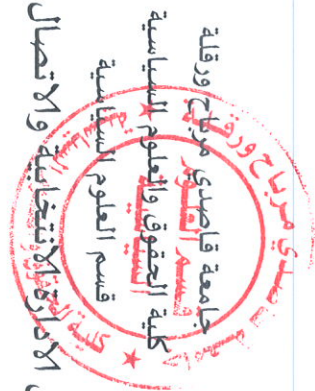 جامعة قاصدي مرباح ورقلة
كلية الحقوق والعلوم السياسية
قسم العلوم السياسية
الادارة الانتخابية والاتصال